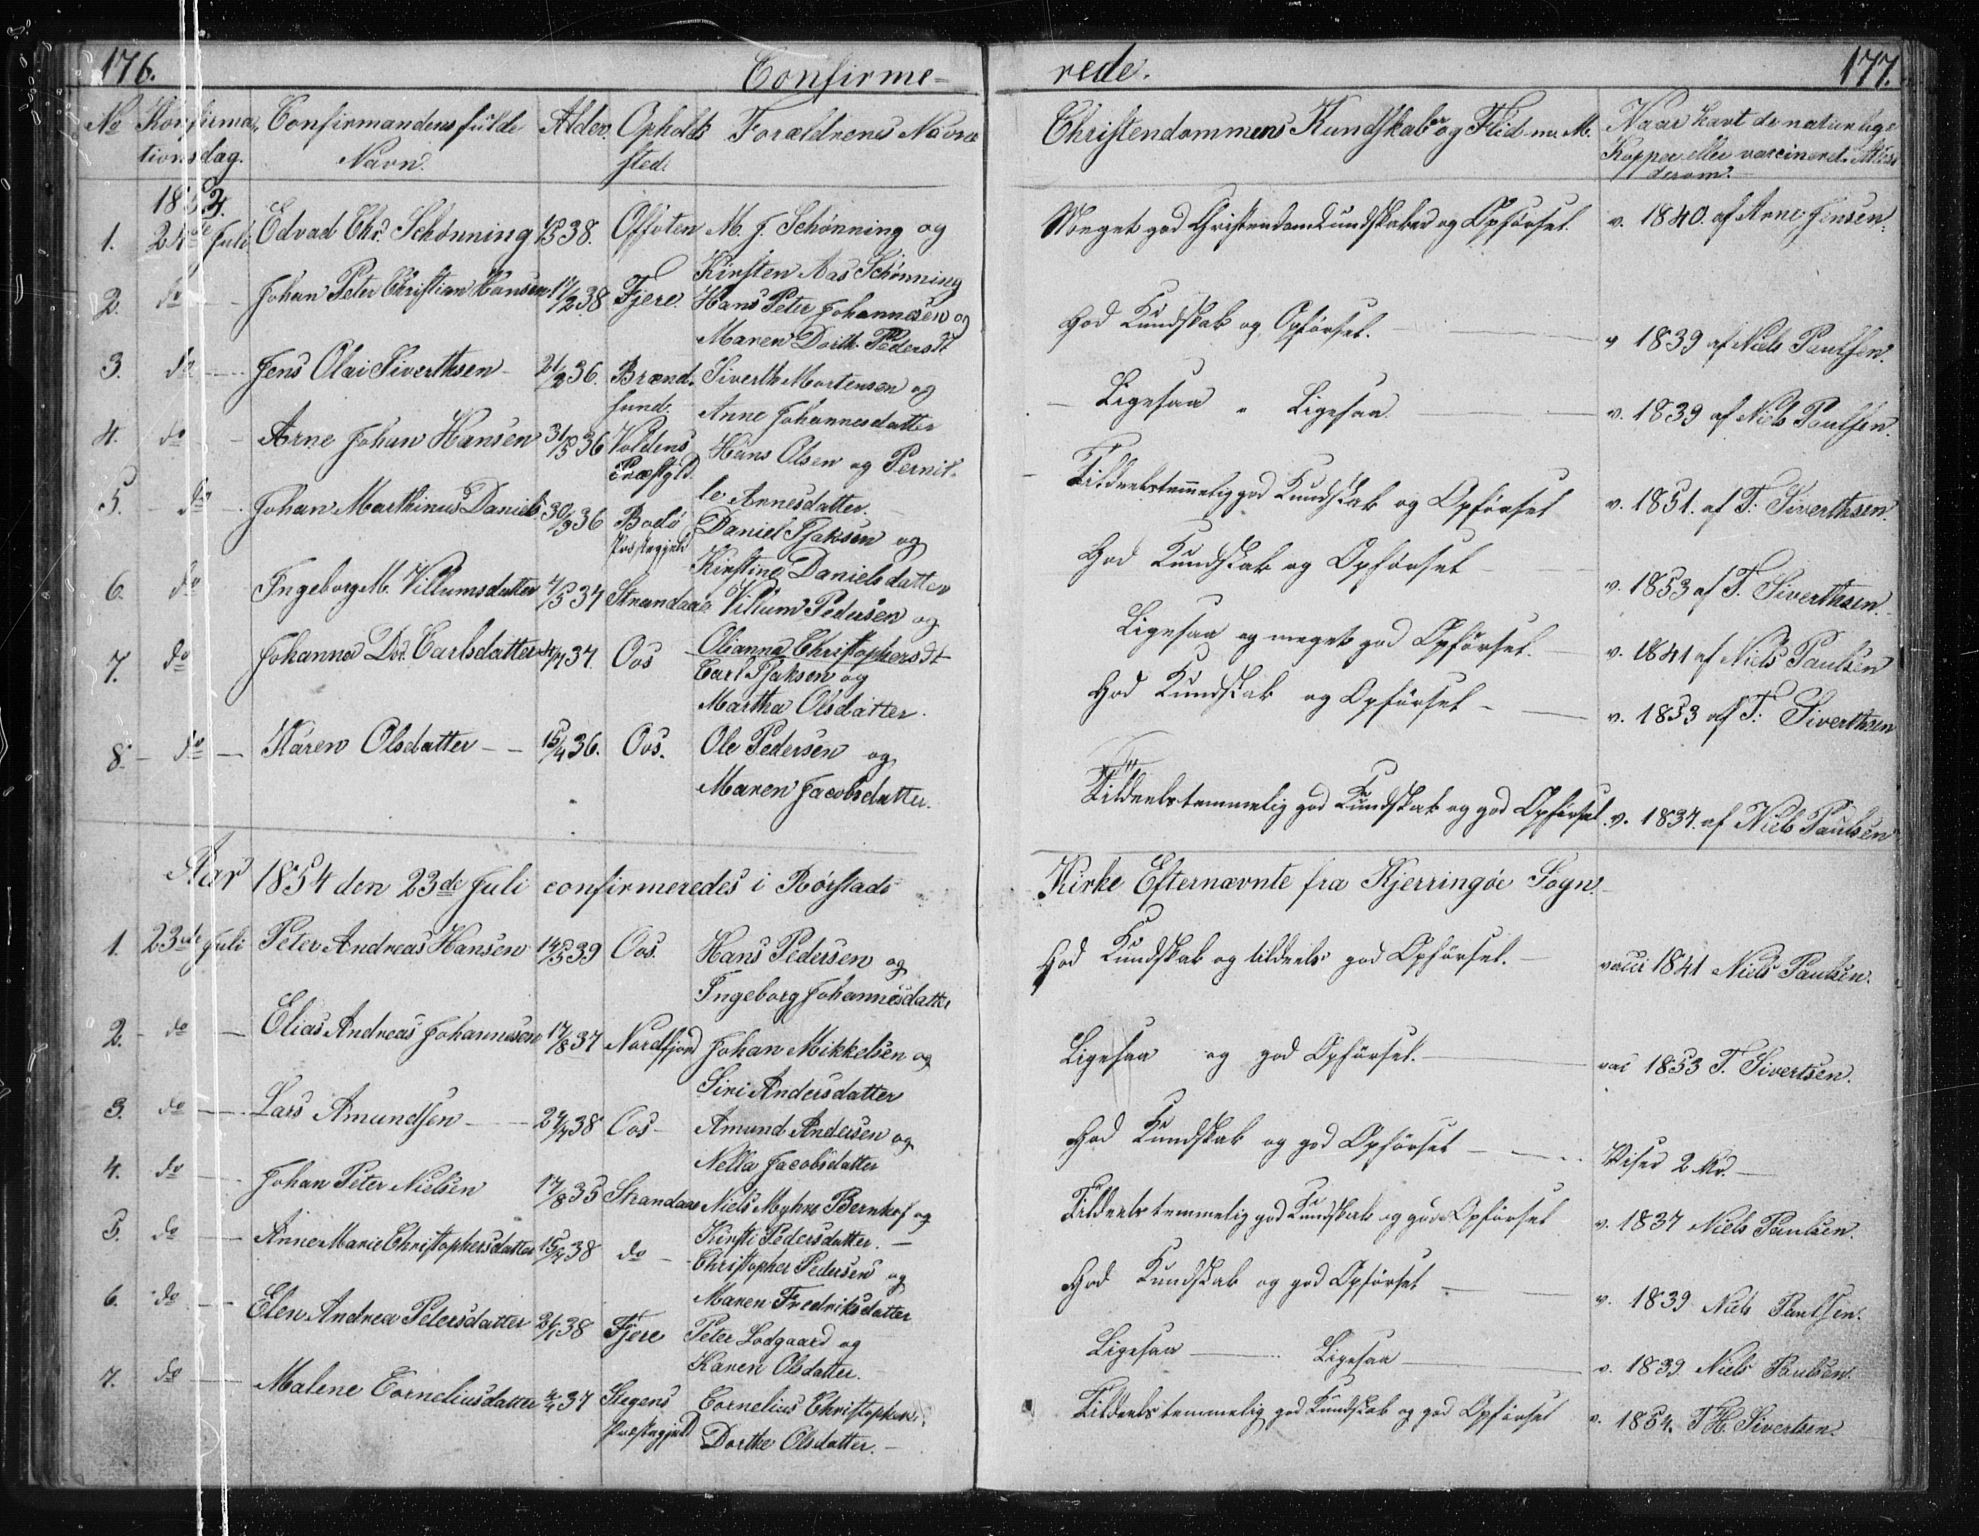 176.
Confirme-
No Konfirma- Confirmandens fulde Alder. Opholds Forældrenes Navne
tionsdag. Navn. sted.
1. 24de Juli Edvad Chr. Schønning 38. Offoten M. J. Schønning og
Kirsten Aas Schønning
2. do Johan Peter Christian Hansen 17/2 38 Fjere. Hans Peter Johannesen og
Maren Dorth. Pedersdt
3. do Jens Olai Siverthsen 21/2 36. Brænd- Siverth Mortensen og
sund. Anne Johannesdatter
4. do Arne Johan Hansen 31/5 36 Foldens Hans Olsen og Pernil-
Præstgld. le Arnesdatter.
5. do Johan Marthinus Daniels 30/3 36 Bodö Daniel Isaksen og
Præstegjeld Kirstine Danielsdatter
6. do Ingeborg M. Villumsdatter 4/5 37 Strandaae Villum Pedersen og
Olianna Christophersdt
7. do Johanna Dor. Carlsdatter 37. Oos Carl Isaksen og
Martha Olsdatter.
8. do Karen Olsdatter 15/4 36. Oos. Ole Pedersen og
Maren Jacobsdatter.
Aar 1854 den 23de Juli confirmeredes i Rørstads
1. 23de Juli Peter Andreas Hansen 14/5 39 Oos. Hans Pedersen og
Ingeborg Johannesdatter
2. do Elias Andreas Johannesen 17/8 37 Nordfjord Johan Mikkelsen og
Siri Andersdatter
3. do Lars Amundsen 24/7 38 Oos Amund Andersen og
Nella Jacobsdatter
4. do Johan Peter Nielsen 17/8 35 Strandaae Niels Myhre Bernhof og
Kirsti Pedersdatter.
5. do Anne Marie Christophersdatter 15/7 38 do Christopher Pedersen og
Maren Fredriksdatter
6. do Elen Andrea Petersdatter 38 Fjere Peter Lodgaard og
Karen Olsdatter.
7. do Malene Corneliusdatter 37 Stegens Cornelius Christophers.
Præstegjeld Dorthe Olsdatter.
rede.
177.
Christendommens Kundskaber og Flid m. M. Naar havt de naturlige
Kopper eller vaccineret. Attest
derom.
Meget god Christendomskundskaber og Opførsel. v. 1840. af Arne Jensen.
God Kundskab og Opførsel. v 1839 af Niels Paulsen.
Ligesaa " Ligesaa v. 1839 af Niels Paulsen.
Tildeels temmelig god Kundskab og Opførsel v. 1851. af T. Siverthsen.
God Kundskab og Opførsel v. 1853 af T. Siverthsen.
Ligesaa og meget god Opførsel. v. 1841 af Niels Paulsen
God Kundskab og Opførsel v. 1853 af T. Siverthsen
Tildeels temmelig god Kundskab og god Opførsel. v. 1837. af Niels Paulsen
Kirke Efternævnte fra Kjerringøe Sogn.
God Kundskab og tildeels god Opførsel. vacci 1841 Niels Paulsen.
Ligesaa og god Opførsel. vac 1853 T. Sivertsen.
God Kundskab og god Opførsel Viser 2 Ar.
Tildeels temmelig god Kundskab og god Opførsel v. 1837 Niels Paulsen.
God Kundskab og god Opførsel v. 1839 Niels Paulsen.
Ligesaa Ligesaa v. 1839 Niels Paulsen.
Tildeels temmelig god Kundskab og god Opførsel v. 1854. T H. Sivertsen.